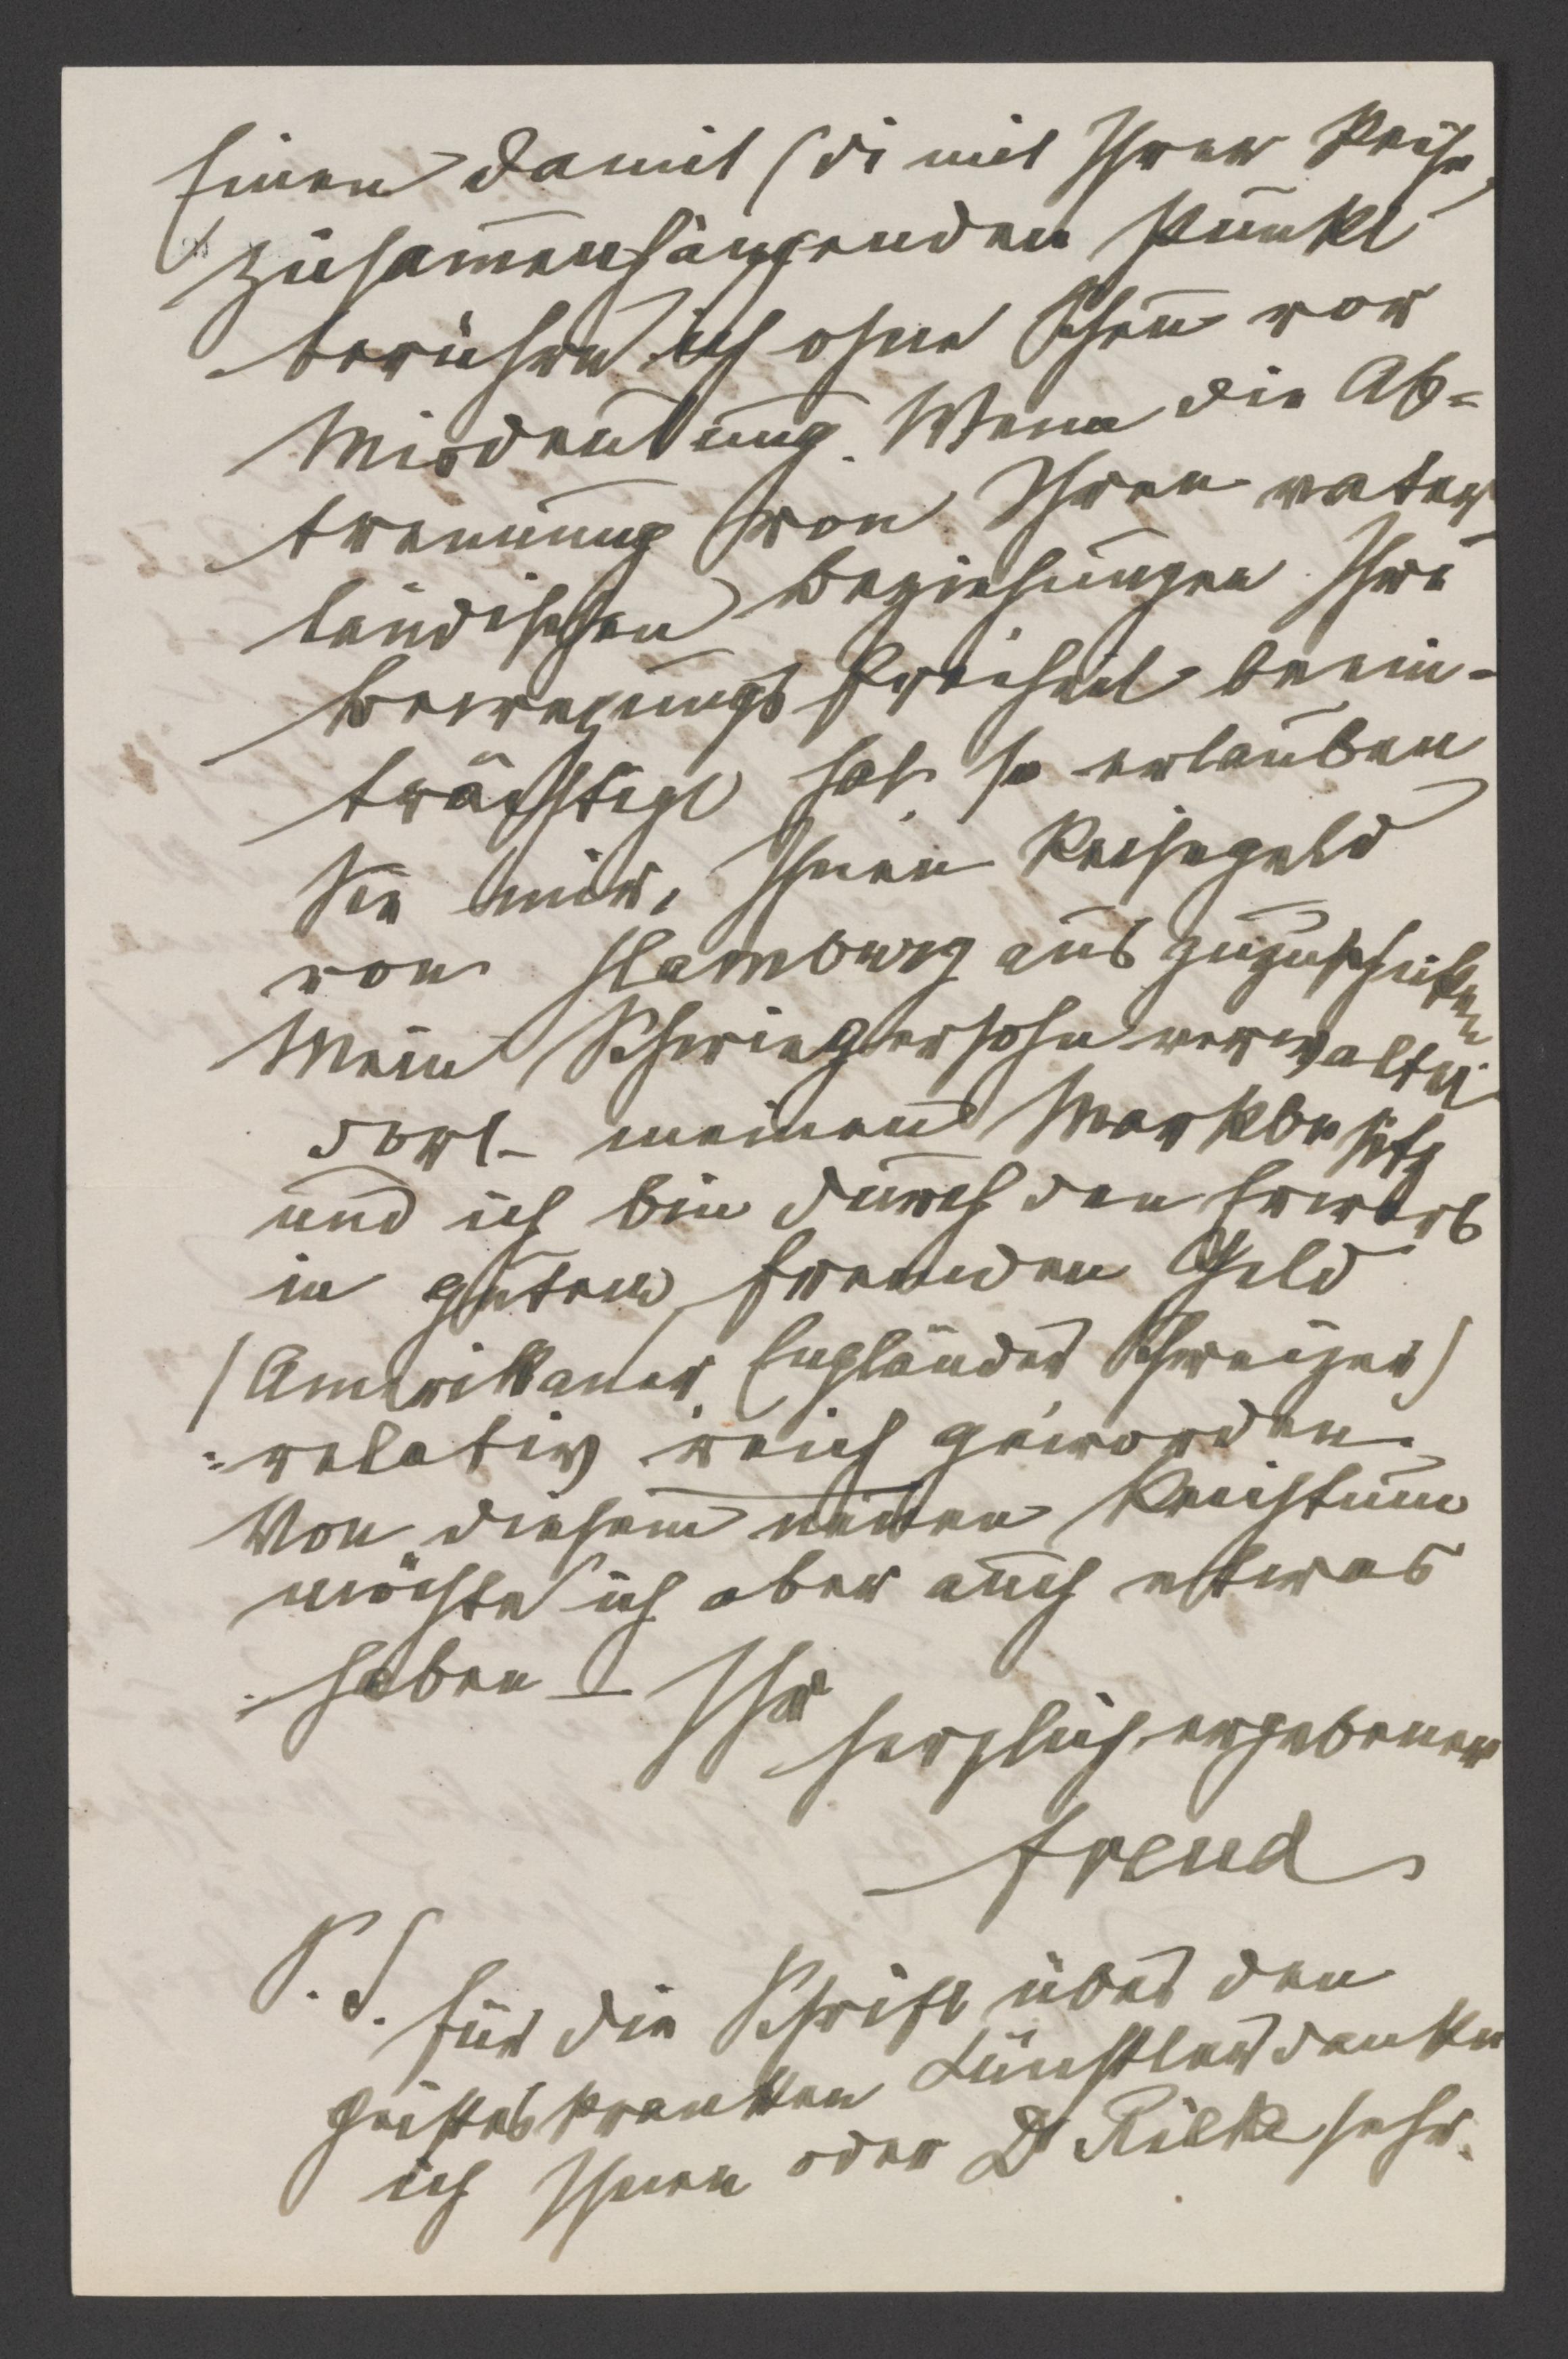 Einen damit (di mit Ihrer Reise)
zusam̅enhängenden Punkt
berühre ich ohne Scheu vor
Misdeutung. Wenn die Ab-
trennung von Ihren vater
ländischen Beziehungen Ihre
Bewegungsfreiheit beein-
trächtigt hat so erlauben
Sie mir, Ihnen Reisegeld
von Hamburg aus zuzuschicken
Mein Schwiegersohn verwaltet
dort meinen Markbesitz
und ich bin durch den Erwerb
in gutem fremden Geld
(Amerikaner Engländer Schweizer)
relativ reich geworden.
Von diesem neuen Reichtum
möchte ich aber auch etwas
haben – Ihr
herzlich ergebener
Freud
P.S.
für die Schrift über den
geisteskranken Künstler danke
ich Ihnen oder Dr Rilke sehr.